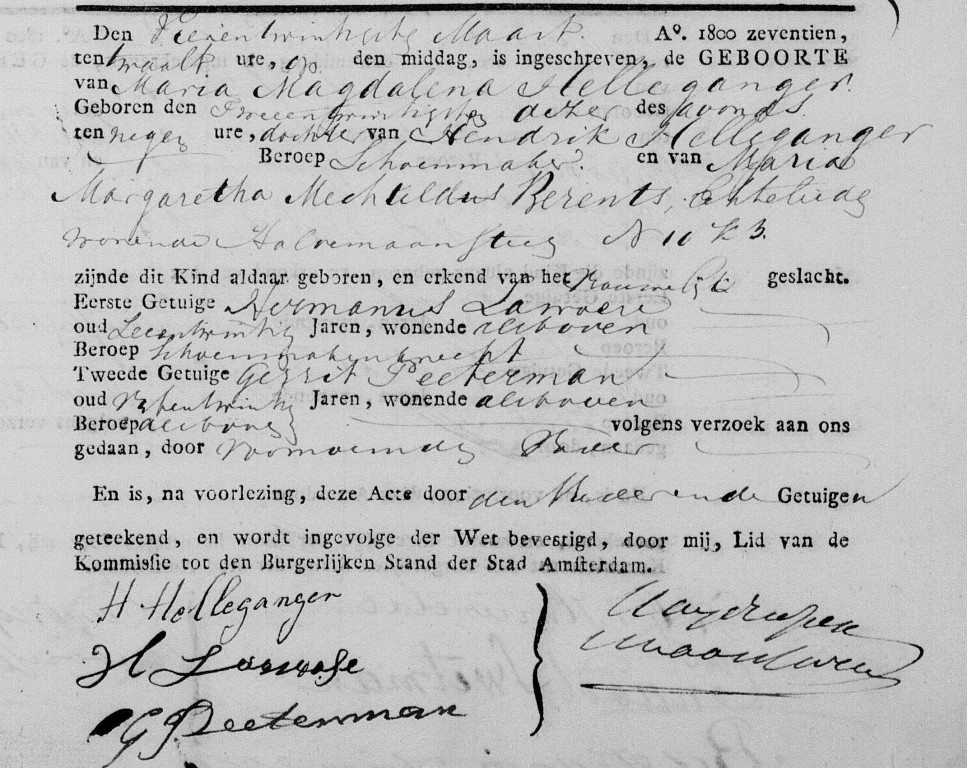 Den Vierentwintigste Maart. A°. 1800 zeventien,
ten twaalf ure, op den middag, is ingeschreven, de GEBOORTE
van Maria Magdalena Helleganger.
Geboren den Tweeentwintigste dezer des avonds
ten negen ure, dochter van Hendrik Helleganger
Beroep Schoenmaker en van Maria
Margaretha Mechteldus Berents, Echtelieden
wonende Halvemaansteeg N 11 K 3.
zijnde dit Kind aldaar geboren, en erkend van het Vrouwelijk geslacht.
Eerste Getuige Hermanus
oud Jaren, wonende als boven
Beroep schoenmakersknecht
Tweede Getuige Gerrit Peeterman
oud Jaren, wonende als boven
Beroep als boven volgens verzoek aan ons
gedaan, door Vader
En is, na voorlezing, deze Acte door den Vader ende Getuigen
geteekend, en wordt ingevolge der Wet bevestigd, door mij, Lid van de
Kommissie tot den Burgerlijken Stand der Stad Amsterdam.
H Helleganger
H
G Peeterman